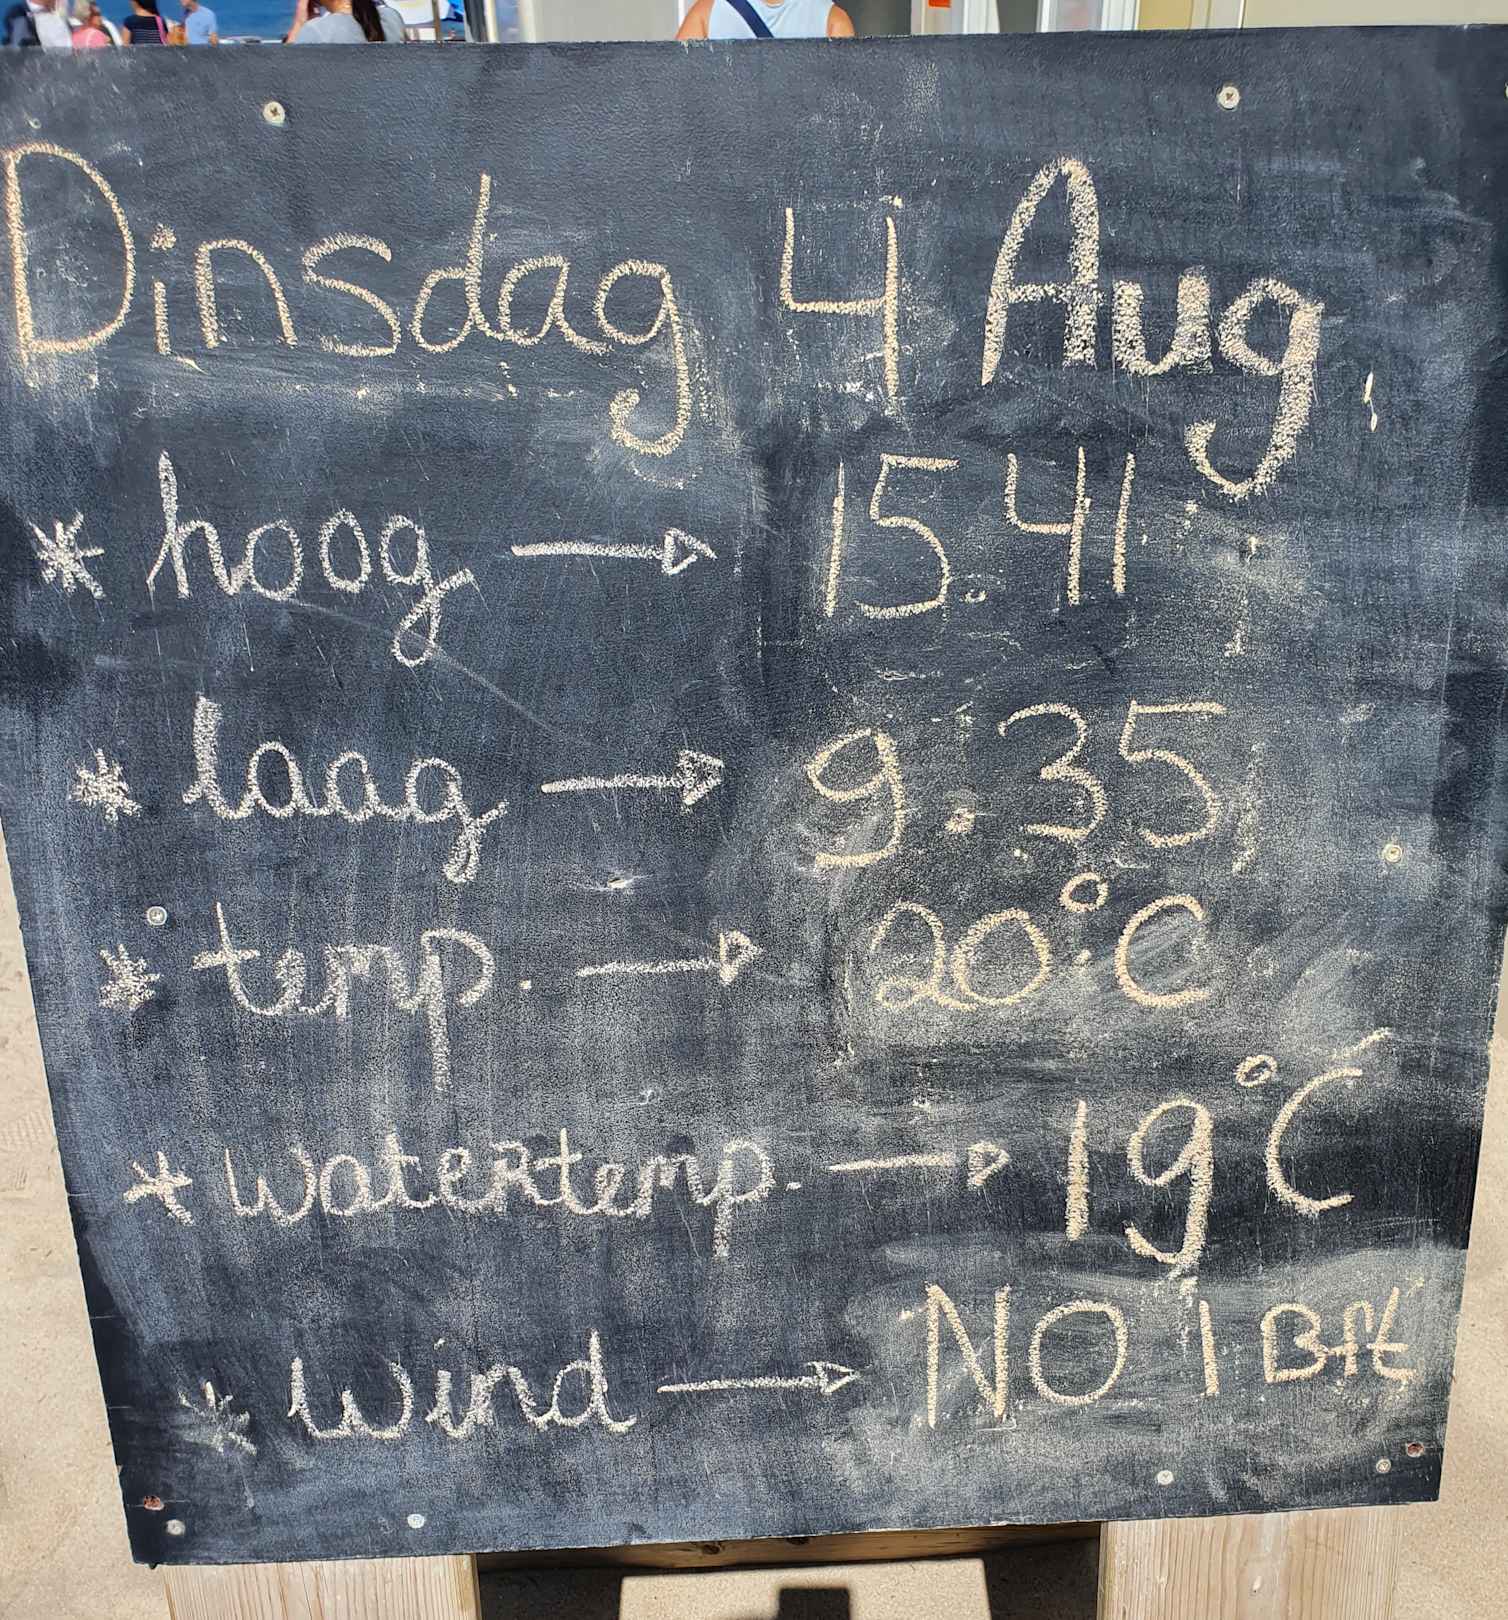 Dinsdag 4 Aug.
* hoog → 15.41
* laag → 9.35
* temp. → 20°C
* watertemp. → 19°C
* wind → NO 1 Bft